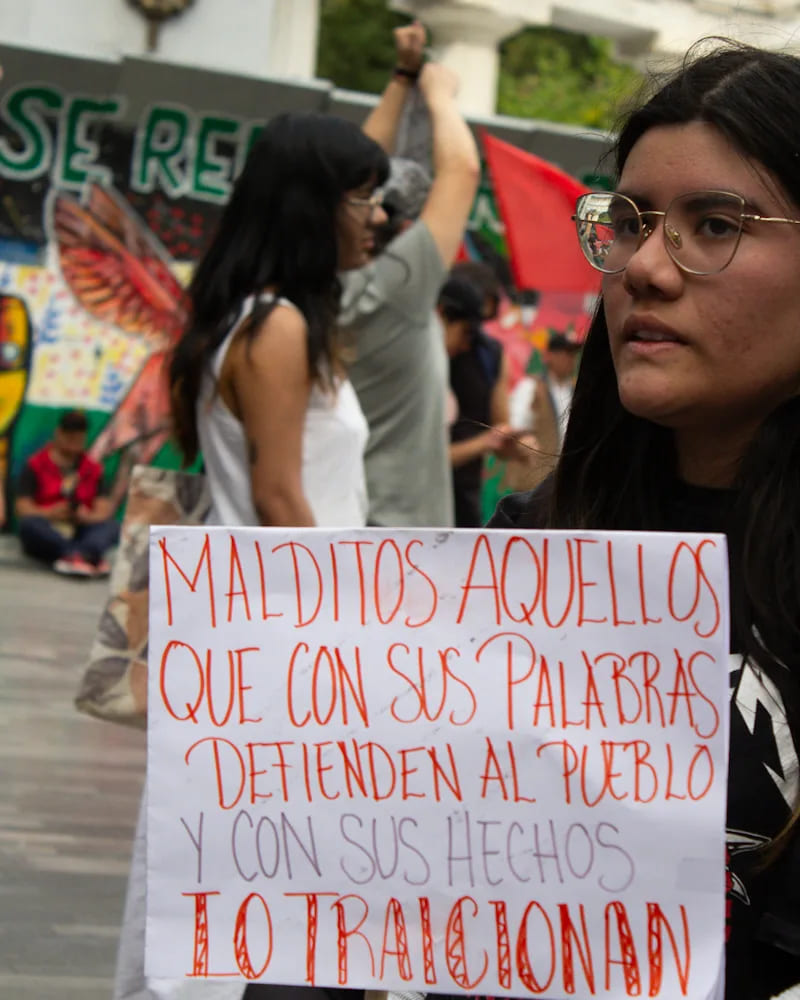 SE RE
MALDITOS AQUELLOS
QUE CON SUS PALABRAS
DEFIENDEN AL PUEBLO
Y CON SUS HECHOS
LO TRAICIONAN